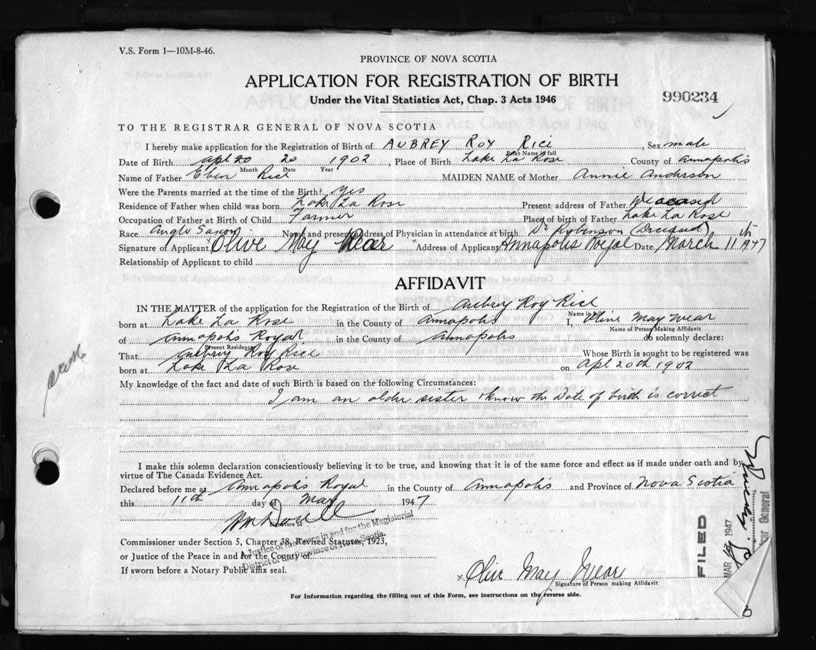 V.S. Form 1—10M-8-46.
PROVINCE OF NOVA SCOTIA
APPLICATION FOR REGISTRATION OF BIRTH
Under the Vital Statistics Act, Chap. 3 Acts 1946
990234
TO THE REGISTRAR GENERAL OF NOVA SCOTIA
I hereby make application for the Registration of Birth of AUBREY ROY RICE, Sex male
Print Name in full
Date of Birth apl 20 20 1902, Place of Birth Lake La Rose County of Annapolis
Month Date Year
Name of Father Eben Rice MAIDEN NAME of Mother Annie Anderson
Were the Parents married at the time of the Birth? yes
Residence of Father when child was born Lake La Rose Present address of Father Deceased
Occupation of Father at Birth of Child Farmer Place of birth of Father Lake La Rose
Race Anglo Saxon Name and present address of Physician in attendance at birth Dr Robinson (Deceased)
Signature of Applicant Olive May Wear Address of Applicant Annapolis Royal Date March 11th 1947
Relationship of Applicant to child
AFFIDAVIT
IN THE MATTER of the application for the Registration of the Birth of Aubrey Roy Rice
born at Lake La Rose in the County of Annapolis I, Olive May Wear
Name of Person Making Affidavit
of Annapolis Royal in the County of Annapolis do solemnly declare:
Present Residence
That Aubrey Roy Rice Whose Birth is sought to be registered was
born at Lake La Rose on Apl 20th 1902
My knowledge of the fact and date of such Birth is based on the following Circumstances:
I am an older sister know the Date of birth is correct
I make this solemn declaration conscientiously believing it to be true, and knowing that it is of the same force and effect as if made under oath and by
virtue of The Canada Evidence Act.
Declared before me at Annapolis Royal in the County of Annapolis and Province of Nova Scotia
this 11th day of May 1947
Commissioner under Section 5, Chapter 38, Revised Statutes, 1923,
or Justice of the Peace in and for the County of
If sworn before a Notary Public affix seal.
A Justice of the Peace in and for the Municipal
District of Province of Nova Scotia.
x Olive May Wear
Signature of Person making Affidavit
For Information regarding the filling out of this Form, see instructions on the reverse side.
FILED
MAR 1947
General